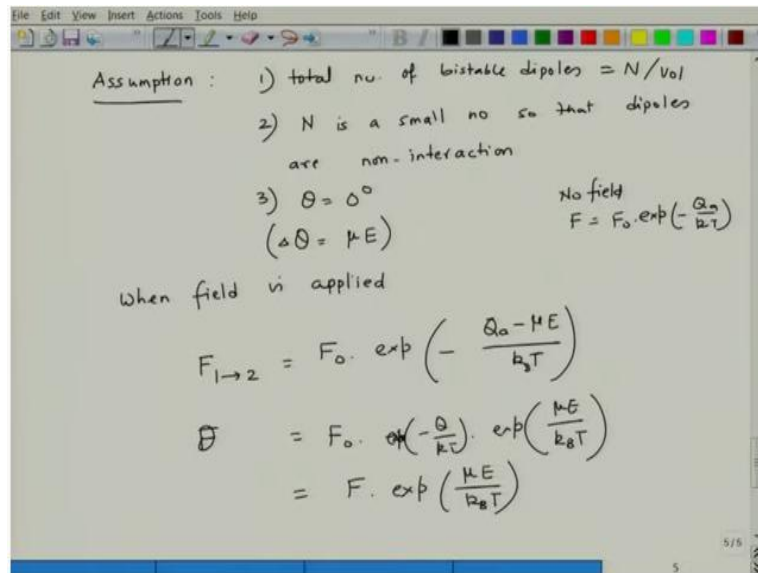 File Edit View Insert Actions Tools Help
B I
Assumption : 1) total nu. of bistable dipoles = N/vol
2) N is a small no so that dipoles
are non-interaction
3) θ = 0°
(Δθ = μE)
No field
F = F₀.exp(-Qa/kT)
when field is applied
F₁→₂ = F₀. exp(- (Qa - μE)/k_BT)
θ = F₀. exp(-Q/kT). exp(μE/k_BT)
= F. exp(μE/k_BT)
5/5
5